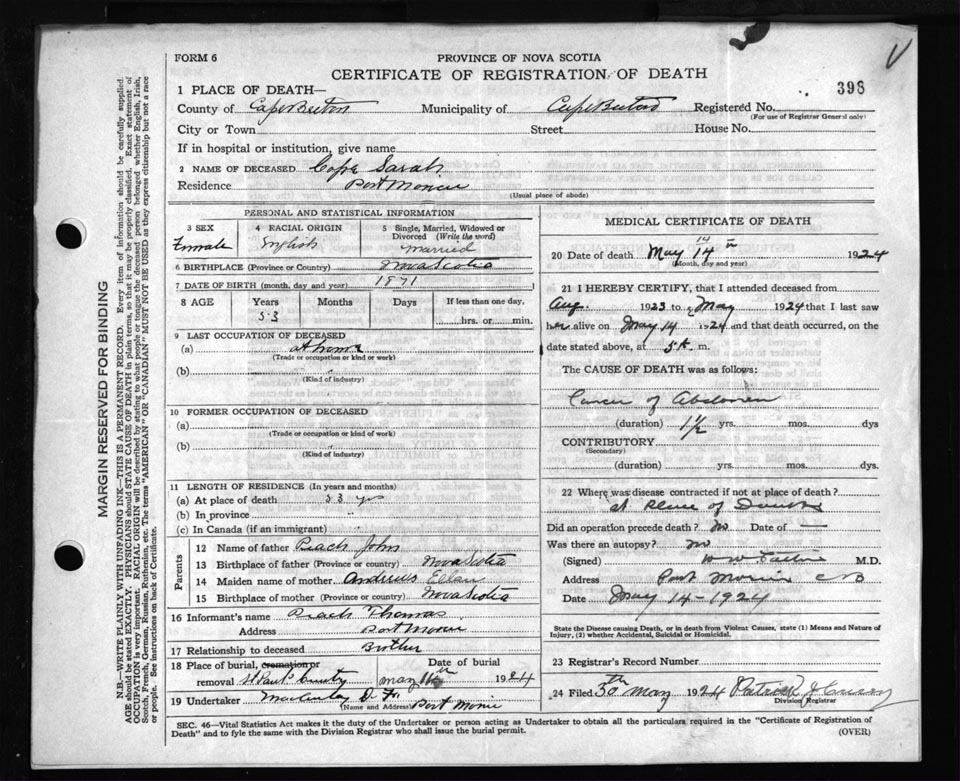 FORM 6
PROVINCE OF NOVA SCOTIA
CERTIFICATE OF REGISTRATION OF DEATH
398
1 PLACE OF DEATH—
County of Cape Breton Municipality of Cape Breton Registered No.
(For use of Registrar General only)
City or Town Street House No.
If in hospital or institution, give name
2 NAME OF DECEASED Cope Sarah
Residence Port Morien
(Usual place of abode)
PERSONAL AND STATISTICAL INFORMATION
3 SEX
Female
4 RACIAL ORIGIN
English
5 Single, Married, Widowed or Divorced (Write the word)
Married
6 BIRTHPLACE (Province or Country) Nova Scotia
7 DATE OF BIRTH (month, day and year) 1871
8 AGE Years Months Days If less than one day,
53 hrs. or min.
9 LAST OCCUPATION OF DECEASED
(a) at home
(Trade or occupation or kind or work)
(b)
(Kind of industry)
10 FORMER OCCUPATION OF DECEASED
(a)
(Trade or occupation or kind or work)
(b)
(Kind of industry)
11 LENGTH OF RESIDENCE (In years and months)
(a) At place of death 53 yrs
(b) In province "
(c) In Canada (if an immigrant) "
Parents
12 Name of father Peach John
13 Birthplace of father (Province or country) Nova Scotia
14 Maiden name of mother Andrews Ellen
15 Birthplace of mother (Province or country) Nova Scotia
16 Informant's name Peach Thomas
Address Port Morien
17 Relationship to deceased Brother
18 Place of burial, cremation or Date of burial
removal St Paul's May 16 1924
19 Undertaker D. Port Morien
(Name and Address)
MEDICAL CERTIFICATE OF DEATH
20 Date of death May 14 1924
(Month, day and year)
21 I HEREBY CERTIFY, that I attended deceased from
Aug. 1923 to May 1924 that I last saw
her alive on May 14 1924 and that death occurred, on the
date stated above, at 5 A. m.
The CAUSE OF DEATH was as follows:
Cancer of Abdomen
(duration) 1½ yrs. mos. dys
CONTRIBUTORY
(Secondary)
(duration) yrs. mos. dys.
22 Where was disease contracted if not at place of death?
at Place of Death
Did an operation precede death? No Date of —
Was there an autopsy? no
(Signed) M.D.
Address Port Morien C B
Date May 14 - 1924
State the Disease causing Death, or in death from Violent Causes, state (1) Means and Nature of
Injury, (2) whether Accidental, Suicidal or Homicidal.
23 Registrar's Record Number
24 Filed 30th May 1924 Patrick J
Division Registrar
SEC. 46—Vital Statistics Act makes it the duty of the Undertaker or person acting as Undertaker to obtain all the particulars required in the "Certificate of Registration of
Death" and to fyle the same with the Division Registrar who shall issue the burial permit.
(OVER)
MARGIN RESERVED FOR BINDING
N.B.—WRITE PLAINLY WITH UNFADING INK—THIS IS A PERMANENT RECORD. Every item of information should be carefully supplied.
AGE should be stated EXACTLY. PHYSICIANS should STATE CAUSE OF DEATH in plain terms, so that it may be properly classified. Exact statement of
OCCUPATION is very important. RACIAL ORIGIN will be described by stating to what people or tongue the deceased person belonged whether English, Irish,
Scotch, French, German, Russian, Ruthenian, etc. The terms "AMERICAN" or "CANADIAN" MUST NOT BE USED as they express citizenship but not a race
or people. See instructions on back of Certificate.